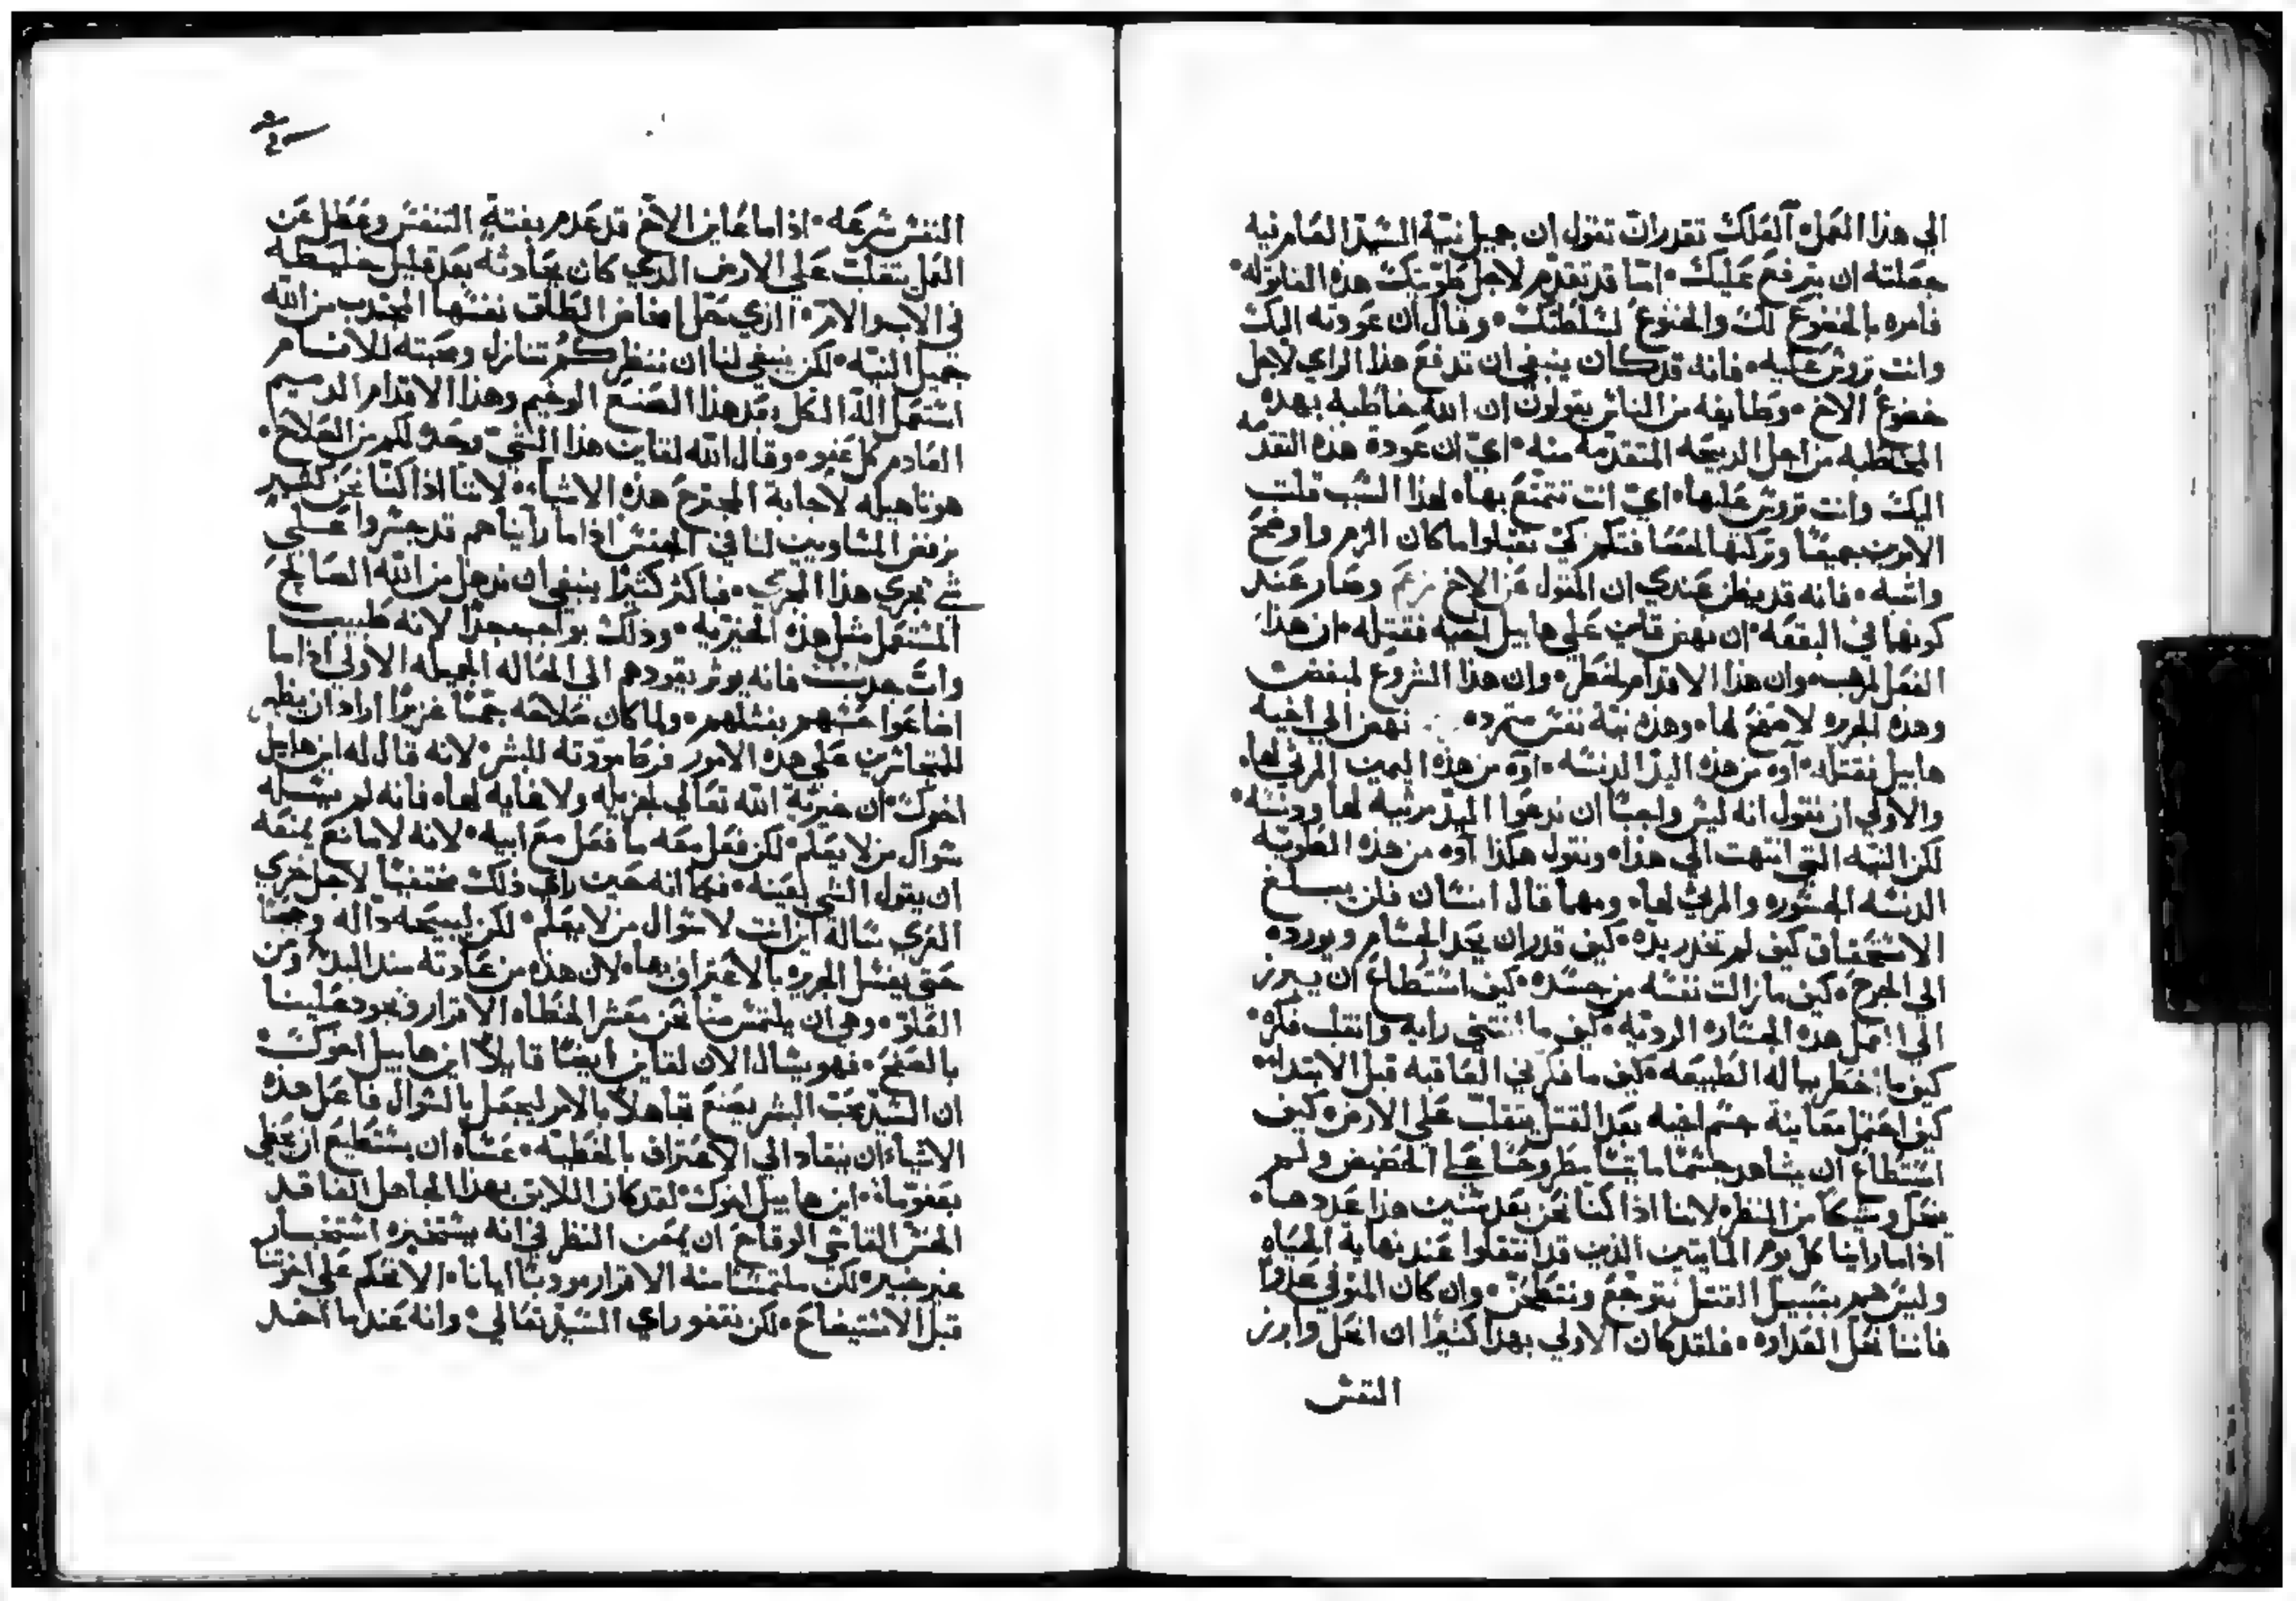 الي هذا العمل العلك تقدر ان تقول ان جميل نية السيد العامر فيه
جعلته ان يترفع عليك • امّا قد تقدم لاجل هذه
فامره بالخضوع لك والخنوع لسلطتك • وقال ان عودته اليك
وانت تروس عليه • فانه قد كان ينبغي ان تدفع هذا الراي لاجل
خضوع الاخ • وطايفه من الناس يقولون ان الله خاطبه بهذه
المخاطبه من اجل الدبيحه المتقدمة منه • اي ان عودة هذه التقدمه
اليك وانت تروس عليها • اي انت تتمتع بها • لهذا السبب قلت
الامرين جميعًا وتركتها لفتكم كي تقبلوا ما كان الزم واوضح
واشبه • فانه قد يظن عندي ان القول عن الاخ زعم وصار عند
كونهما في البقعه • ان نهض قاين علي هابيل اخيه فقتله • ان هذا
الفعل لمرهب • وان هذا الاقدام لخطر • وان هذا الشروع لمبغض
وهذه الجريره لا صفح لها • وهذه نية نفس • نهض الي اخيه
هابيل فقتله • آوه من هذه اليد الدنسه • آوه من هذه اليمين المرثي لها •
والاولي ان نقول انه ليس واجبًا ان ندعوا اليد مرثية لها ودنسه •
لكن النيه التي انتهت الي هذا • ونقول هكذا آوه من هذه الطويه
الدنسه الجسوره والمرثي لها • ومهما قال انسان فلن يبلغ
الاستحقاق كيف لم تخدر يده • كيف قدر ان يحد الحسام ويورده
الي الجرح • كيف ما زالت نفسه من جسده • كيف استطاع ان يبرز
الي العمل هذه الجساره الرديه • كيف ما انثني رايه وانقلب فكره •
كيف ما خطر بباله الطبيعه • كيف ما فكر في العاقبه قبل الابتداء •
كيف احتمل معاينة جسم اخيه بعد القتل يتقلب علي الارض • كيف
استطاع ان يشاهد جسمًا مايتًا مطروحًا علي الحضيض ولم
ينحل وشيكًا من النظر • لاننا اذا كنا نحن بعد سنين هذا عددها •
اذا ما راينا كل يوم المايتين الذين قد انتقلوا عند نهاية الحياه
وليس هم بسبيل القتل نتوجع وننطحن • وان كان المتوفي عدوًا
فاننا نحل العداوه • فلقد كان الاولي بهذا كثيرًا ان انحل وابرز
النفس
النفس سرعه • اذا ما عاين الاخ قد عدم بغتة التنفس وعطل عن
العمل يتقلب علي الارض الذي كان يحادثه بعد قليل خليطه
في الاب والام • الذي الطلق نفسها المجتدب من الله
جميل النيه • لكن ينبغي لنا ان ننظر كم تنازل ومحبته للانسام
استعمل الة الكل بعد هذا الصنع الوخيم وهذا الاقدام الدميم
العادم كل عفو • وقال الله لقاين هذا الشي وحده لكم من الصلاح •
هو تاهيله لاجابة المجترح هذه الاشياء • لاننا اذا كنا نحن كثير
نرفض المساويين لنا في الجنس اذا ما رأيناهم قد جسروا علي
شي يجري هذا المجري • فاكثر كثيرًا ينبغي ان نذهل من الله الصالح
المستعمل مثل هذه الخيريه • وذلك بواجب جدًا لانه طبيب
واب فانه يوثر يقودهم الي الحاله الجميله الاولي اذا ما
اضاعوا حسبهم بفشلهم • ولما كان صلاحه جمًا غزيرًا اراد ان يظهر
للمتجاسرين علي هذه الامور فرط مودته للبشر • لانه قال له اين هابيل
اخوك • ان خيرية الله تعالي لجزيله ولا نهايه لها • فانه لم يسئله
سوال من لا يعلم • لكن فعل معه ما فعل مع ابيه • لانه لا مانع يمنعه
ان يقول الشي بعينه • فكما انه حين راي ذلك مختفيًا لاجل خزي
العري ساله اين انت لا سوال من لا يعلم • لكن ليبيحه دآله وجهًا
حتي يغسل الجريره بالاعتراف بها • لان هذه من عادته منذ البدء ومن
الفلق • وهي ان يلتمس منّا نحن معشر الخطاه الاقرار ويجود علينا
بالصفح • فهو يسال الان لقاين ايضًا قايلًا اين هابيل اخوك •
ان السيد محب البشر يصنع تجاهلًا بالامر ليجعل بالسوال فاعل هذه
الاشياء ان ينقاد الي الاعتراف بالخطيه • عساه ان يستطيع ان يحظي
بعفو ماء • اين هابيل اخوك • لقد كان اللايق بهذا الجاهل الفاقد
الحس القاسي الوقاح ان يمعن النظر في انه يستخبره استخبار
غير خبير • لكن ملتمسًا منه الاقرار مودبًا ايانا • الا نحكم علي اخوتنا
قبل الاستيضاح • لكن نقفو راي السيد تعالي • وانه عندما اخد